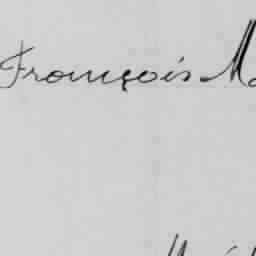 François M